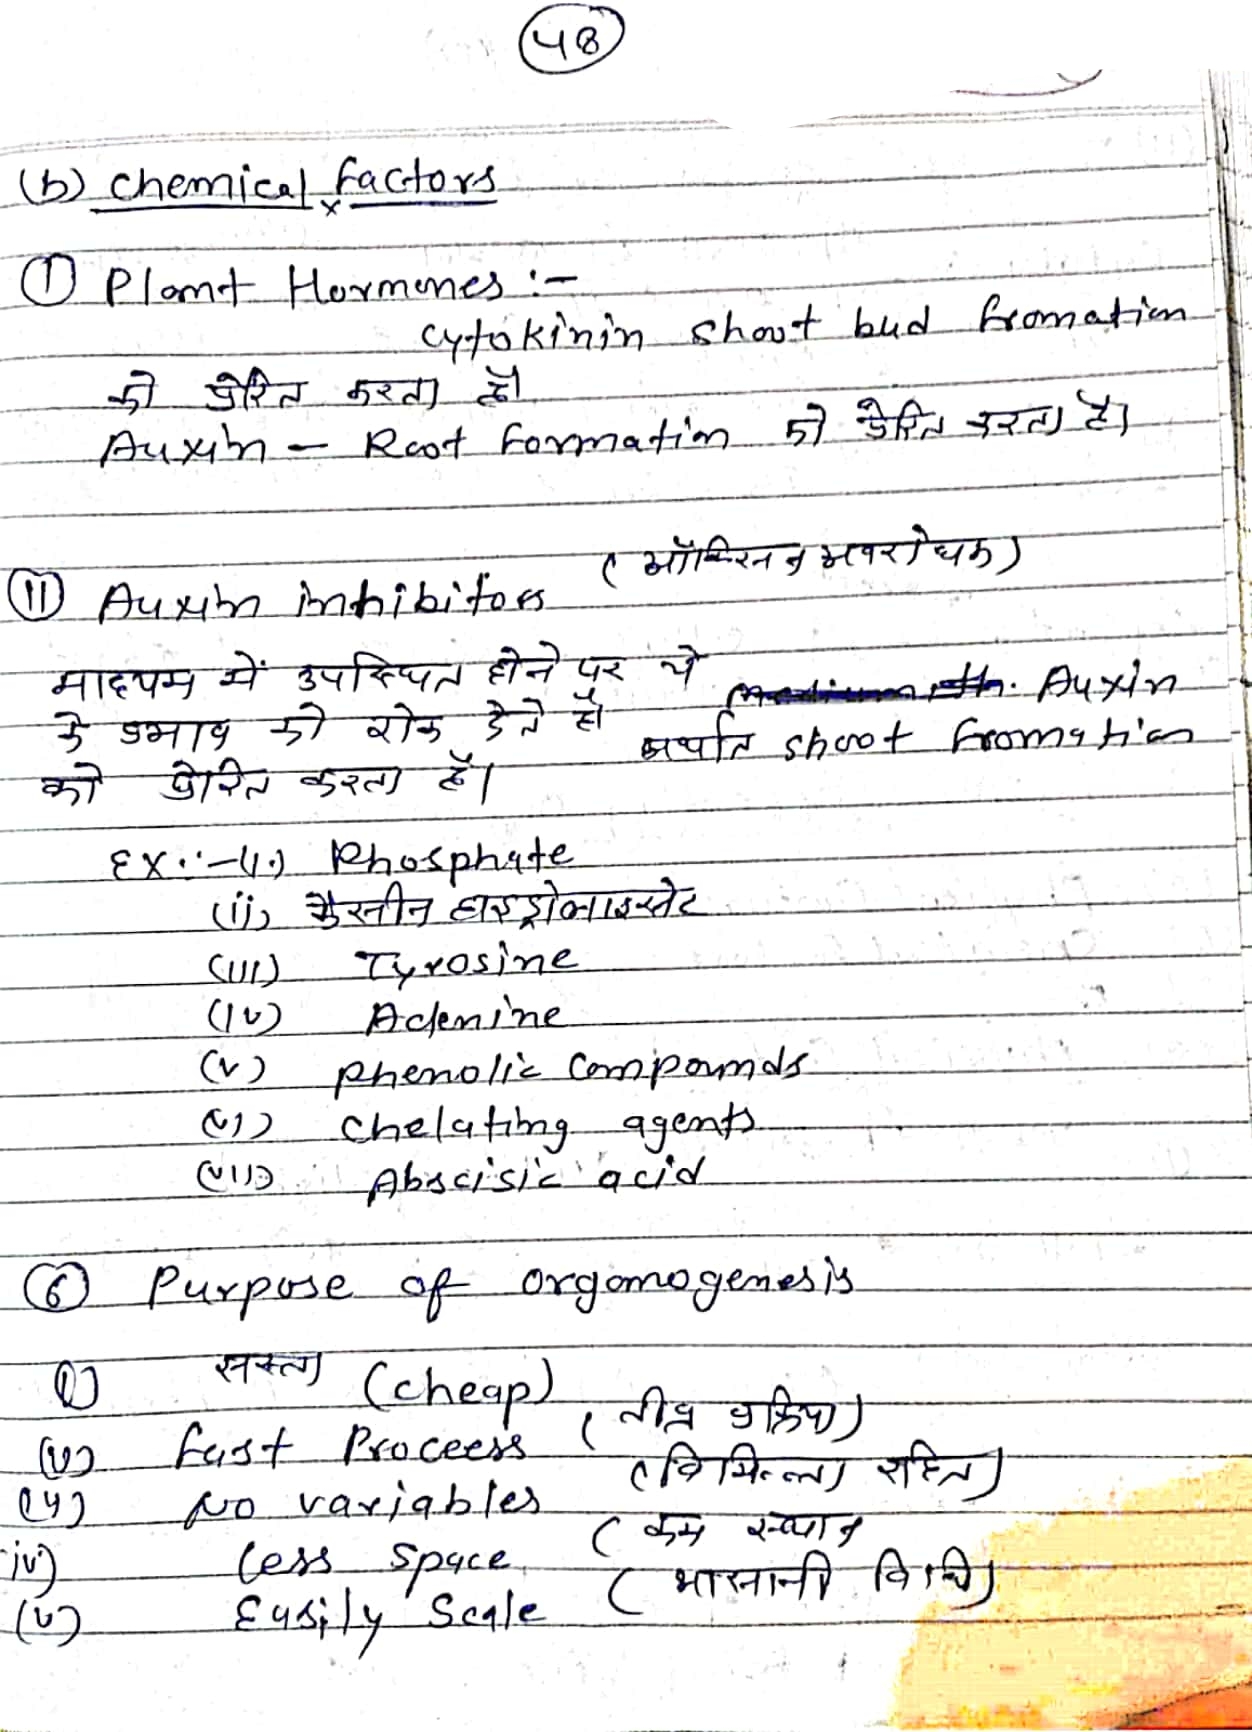 48
(b) Chemical factors
(I) Plant Hormones :-
Cytokinin shoot bud fromation
को प्रेरित करता है।
Auxin - Root formation को प्रेरित करता है।
(ऑक्सिन अवरोधक)
(II) Auxin inhibitors
माध्यम में उपस्थित होने पर ये Auxin
के प्रभाव को रोक देते है। अर्थात shoot fromation
को प्रेरित करता है।
Ex :- (i) Phosphate
(ii) कैसीन हाइड्रोलाइसेट
(iii) Tyrosine
(iv) Adenine
(v) phenolic compounds
(vi) chelating agents
(vii) Abscisic acid
(6) Purpose of organogenesis
(i) सस्ता (cheap)
(ii) fast Proceess (तीव्र प्रक्रिया)
(iii) No variables (विभिन्नता रहित)
(iv) less space (कम स्थान
(v) Easily Scale (आसानी विधि)